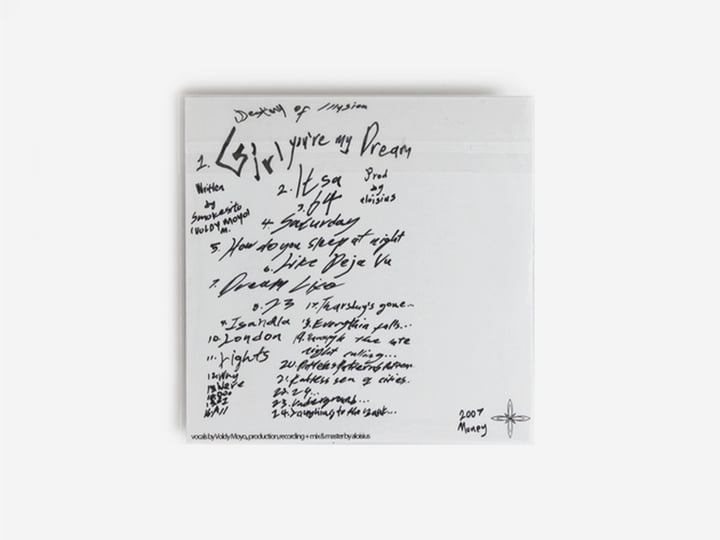 Destiny of illusion
1. Girl you're my Dream
Written
by
Smokesito
(VOLDY MOYO)
M.
Prod
by
aloisius
2. Itsa
3. 64
4. Saturday
5. How do you sleep at night
6. Like Deja Vu
7. Dream Like
8. 23
9. Isabella
10. London
11. Fights
12. Why
13. Were
14.
15.
16. All
17. Tharsday's gone...
18. Everythin falls...
19. Enough
night calling...
20.
21. Ruthless son of cities.
22. 29...
23. Underground...
24. Laughing to the bank...
2007
Money
vocals by Voldy Moyo, production, recording + mix & master by aloisius